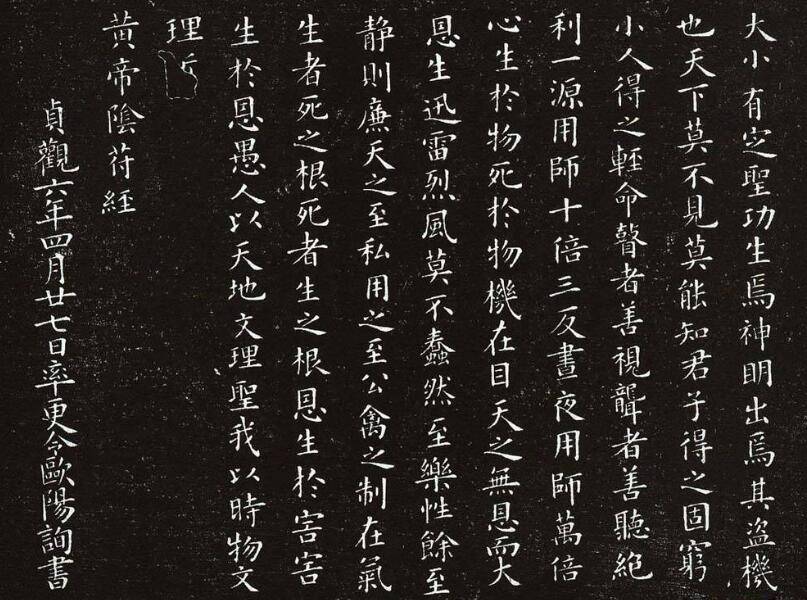 大小有定聖功生焉神明出焉其盜機
也天下莫不見莫能知君子得之固窮
小人得之輕命瞽者善視聾者善聽絕
利一源用師十倍三反晝夜用師萬倍
心生於物死於物機在目天之無恩而大
恩生迅雷烈風莫不蠢然至樂性餘至
靜則廉天之至私用之至公禽之制在氣
生者死之根死者生之根恩生於害害
生於恩愚人以天地文理聖我以時物文
理
黃帝陰苻經
貞觀六年四月廿七日率更令歐陽詢書